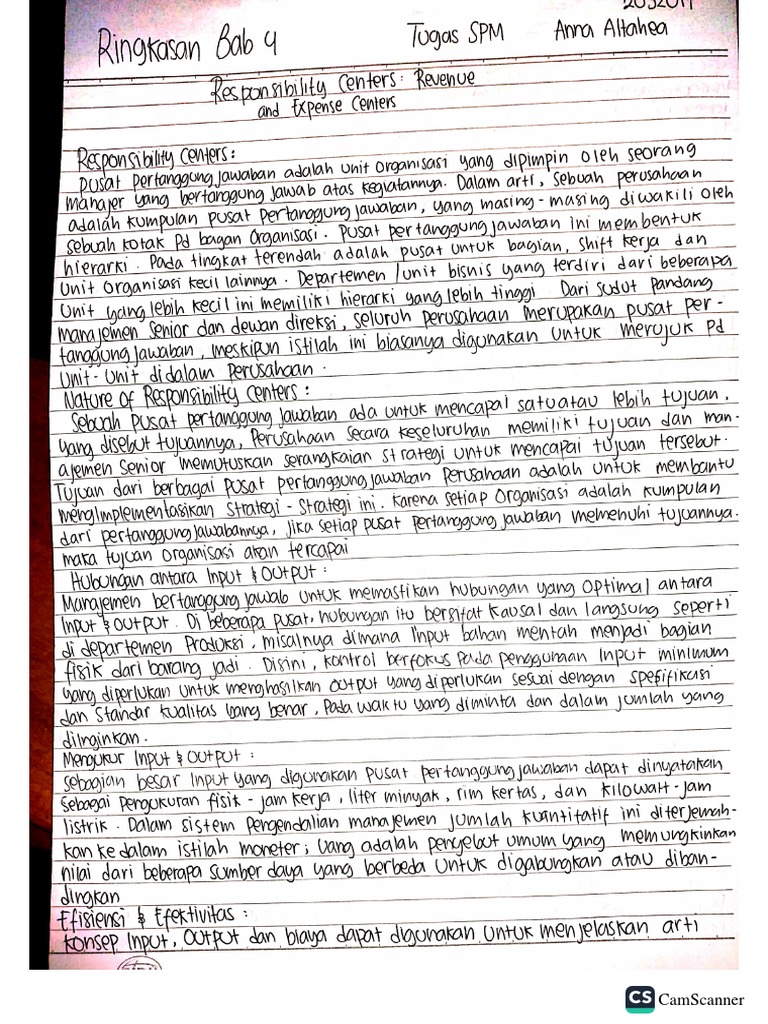 Ringkasan Bab 4 Tugas SPM Anna Altahea
Responsibility Centers: Revenue
and Expense Centers
Responsibility Centers:
Pusat pertanggung jawaban adalah unit organisasi yang dipimpin oleh seorang
manajer yang bertanggung jawab atas kegiatannya. Dalam arti, sebuah perusahaan
adalah kumpulan pusat pertanggung jawaban, yang masing-masing diwakili oleh
sebuah kotak pd bagan organisasi. Pusat pertanggung jawaban ini membentuk
hierarki. Pada tingkat terendah adalah pusat untuk bagian, shift kerja dan
unit organisasi kecil lainnya. Departemen / unit bisnis yang terdiri dari beberapa
unit yang lebih kecil ini memiliki hierarki yang lebih tinggi Dari sudut pandang
manajemen senior dan dewan direksi, seluruh perusahaan merupakan pusat per-
tanggung jawaban, meskipun istilah ini biasanya digunakan untuk merujuk pd
unit-unit didalam perusahaan.
Nature of Responsibility Centers:
Sebuah pusat pertanggung jawaban ada untuk mencapai satu atau lebih tujuan,
yang disebut tujuannya, Perusahaan secara keseluruhan memiliki tujuan dan man-
ajemen senior memutuskan serangkaian strategi untuk mencapai tujuan tersebut.
Tujuan dari berbagai pusat pertanggung jawaban perusahaan adalah untuk membantu
mengimplementasikan strategi-strategi ini. Karena setiap organisasi adalah kumpulan
dari pertanggung jawabannya, jika setiap pusat pertanggung jawaban memenuhi tujuannya.
maka tujuan organisasi akan tercapai
Hubungan antara Input & Output:
Manajemen bertanggung jawab untuk memastikan hubungan yang optimal antara
Input & Output. Di beberapa pusat, hubungan itu bersifat kausal dan langsung seperti
di departemen produksi, misalnya dimana input bahan mentah menjadi bagian
fisik dari barang jadi. Disini, kontrol berfokus pada penggunaan input minimum
yang diperlukan untuk menghasilkan output yang diperlukan sesuai dengan spefifikasi
dan standar kualitas yang benar, pada waktu yang diminta dan dalam jumlah yang
diinginkan.
Mengukur Input & Output:
Sebagian besar input yang digunakan pusat pertanggung jawaban dapat dinyatakan
sebagai pengukuran fisik - jam kerja, liter minyak, rim kertas, dan kilowatt-jam
listrik. Dalam sistem pengendalian manajemen jumlah kuantitatif ini diterjemah-
kan ke dalam istilah moneter; uang adalah penyebut umum yang memungkinkan
nilai dari beberapa sumber daya yang berbeda untuk digabungkan atau diban-
dingkan
Efisiensi & Efektivitas:
Konsep input, output dan biaya dapat digunakan untuk menjelaskan arti
CS CamScanner